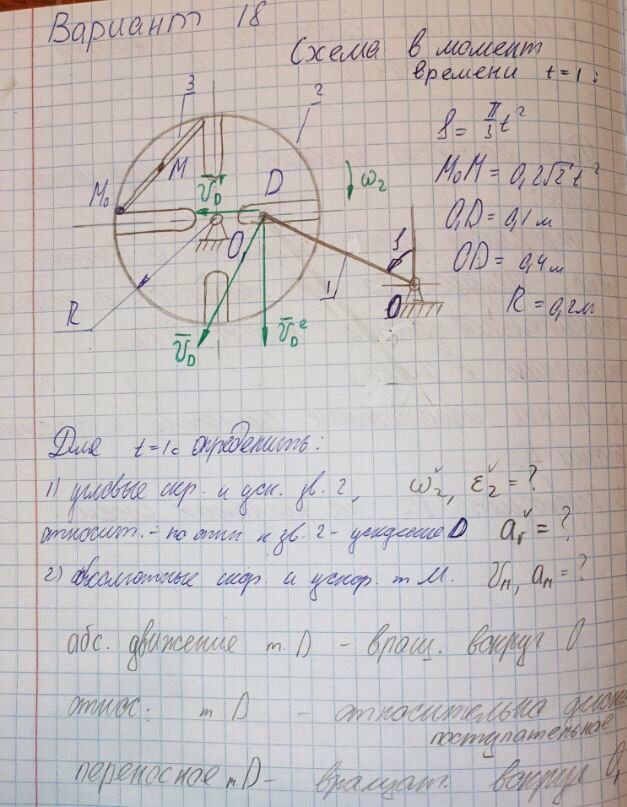 Вариант 18
Схема в момент
времени t=1с
3
2
S = π/3 t²
M₀M = 0,2√2 t²
O₁D = 0,1 м
OD = 0,4 м
R = 0,2 м
M₀
M
V̄_D^r
D
ω₂
O₁
1
O
R
V̄_D
V̄_D^e
Для t=1с определить:
1) угловые скр. и уск. зв. 2, ω₂, ε₂ = ?
относит. - по отн к зв. 2 - ускорение D a_r = ?
2) абсолютные скор. и ускор. т M. V_M, a_M = ?
абс. движение т. D - вращ. вокруг O
относ: т D - относительно диска
поступательное
переносное т. D - вращат. вокруг O₁